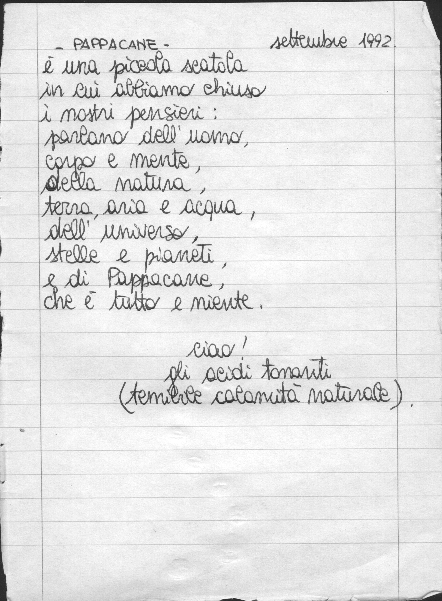 - PAPPACANE - settembre 1992.
è una piccola scatola
in cui abbiamo chiuso
i nostri pensieri:
parlano dell'uomo,
corpo e mente,
della natura,
terra, aria e acqua,
dell'universo,
stelle e pianeti,
e di Pappacane,
che è tutto e niente.
ciao!
gli acidi tonanti
(temibile calamità naturale).